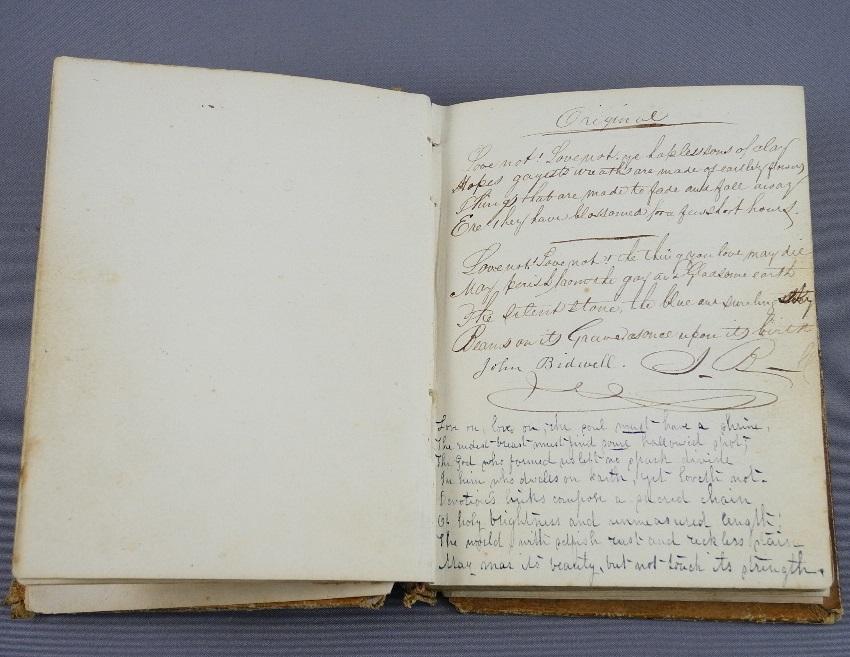 Original
Love not! Love not! ye hapless sons of clay
Hopes gayest wreaths are made of earthly flowers
Things that are made to fade and fall away
Ere they have blossomed for a few short hours.
Love not! Love not! the thing you love may die
May perish from the gay and Gladsome earth
The silent stone, the blue and smiling sky
Beams on its Grave as once upon its birth
John Bidwell. J B
Love on, love on, the soul must have a shrine,
The rudest breast must find some hallowed spot;
The God who formed us left no spark divine
In him who dwells on earth, yet loveth not.
Devotion's links compose a sacred chain
Of holy brightness and unmeasured length;
The world, with selfish rust and reckless stain
May mar its beauty, but not touch its strength.